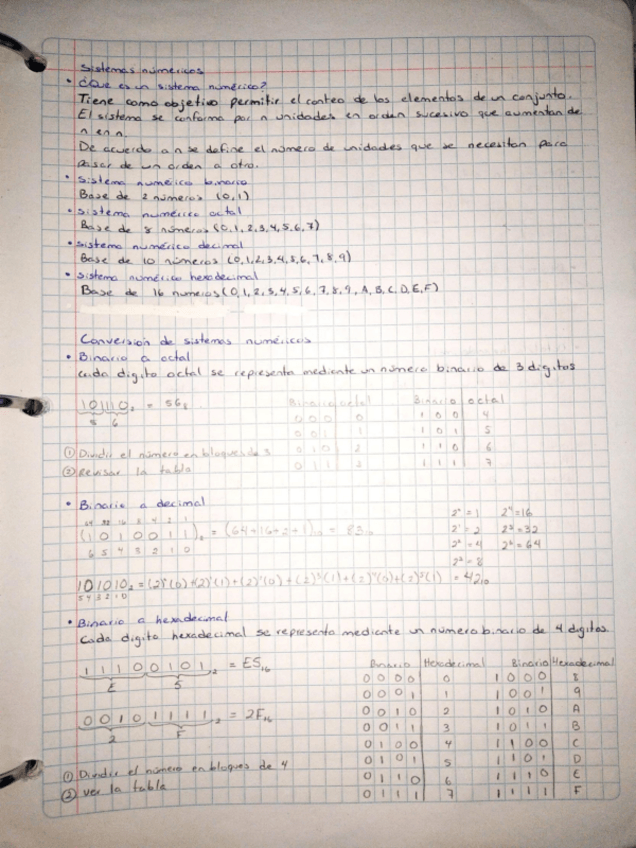 Sistemas númericos
• ¿Que es un sistema numérico?
Tiene como objetivo permitir el conteo de los elementos de un conjunto.
El sistema se conforma por n unidades en orden sucesivo que aumentan de
n en n.
De acuerdo a n se define el número de unidades que se necesitan para
pasar de un orden a otro.
• Sistema numérico binario
Base de 2 números (0,1)
• Sistema numérico octal
Base de 8 números (0,1,2,3,4,5,6,7)
• Sistema numérico decimal
Base de 10 números (0,1,2,3,4,5,6,7,8,9)
• Sistema numérico hexadecimal
Base de 16 numeros (0,1,2,3,4,5,6,7,8,9,A,B,C,D,E,F)
Conversión de sistemas numéricos
• Binario a octal
Cada digito octal se representa mediante un número binario de 3 digitos
101110₂ = 56₈
5 6
Binario octal
0 0 0 0
0 0 1 1
0 1 0 2
0 1 1 3
Binario octal
1 0 0 4
1 0 1 5
1 1 0 6
1 1 1 7
① Dividir el número en bloques de 3
② Revisar la tabla
• Binario a decimal
64 32 16 8 4 2 1
(1 0 1 0 0 1 1)₂ = (64+16+2+1)₁₀ = 83₁₀
6 5 4 3 2 1 0
2⁰=1 2⁴=16
2¹=2 2⁵=32
2²=4 2⁶=64
2³=8
101010₂ = (2)⁰(0)+(2)¹(1)+(2)²(0)+(2)³(1)+(2)⁴(0)+(2)⁵(1) = 42₁₀
5 4 3 2 1 0
• Binario a hexadecimal
Cada digito hexadecimal se representa mediante un número binario de 4 digitos
1 1 1 0 0 1 0 1₂ = E5₁₆
E 5
0 0 1 0 1 1 1 1₂ = 2F₁₆
2 F
① Dividir el número en bloques de 4
② ver la tabla
Binario Hexadecimal
0 0 0 0 0
0 0 0 1 1
0 0 1 0 2
0 0 1 1 3
0 1 0 0 4
0 1 0 1 5
0 1 1 0 6
0 1 1 1 7
Binario Hexadecimal
1 0 0 0 8
1 0 0 1 9
1 0 1 0 A
1 0 1 1 B
1 1 0 0 C
1 1 0 1 D
1 1 1 0 E
1 1 1 1 F